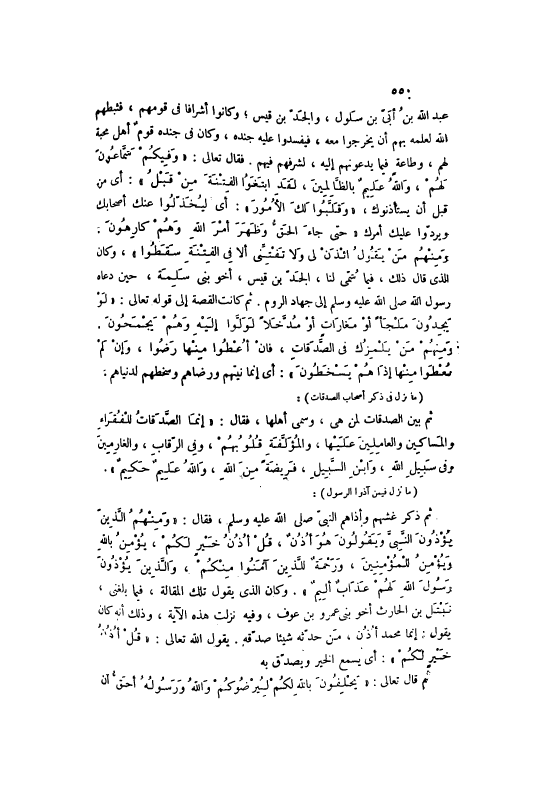 ٥٥٠
عبد الله بنُ أُبَىّ بن سَلول ، والجَدّ بن قيس ؛ وكانوا أشرافا فى قومهم ، فثبطهم
الله لعلمه بهم أن يخرجوا معه ، فيفسدوا عليه جنده ، وكان فى جنده قومٌ أهل محبة
لهم ، وطاعة فيما يدعونهم إليه ، لشرفهم فيهم . فقال تعالى : « وَفِيكُمْ سَمَّاعُونَ
لَهُمْ ، وَاللهُ عَلِيمٌ بالظَّالِمِينَ ، لَقَدِ ابتَغَوُا الفِتْنَةَ مِنْ قَبْلُ » : أى من
قبل أن يستأذنوك ، « وَقَلَّبُوا لكَ الأُمُورَ » : أى لِيُخَذّلوا عنك أصحابك
ويردّوا عليك أمرك « حتَّى جاءَ الحَقُّ وَظَهَرَ أمْرُ اللهِ وَهُمْ كارِهُونَ .
وَمِنْهُم مَنْ يَقُولُ ائْذَنْ لى ولا تَفْتِنِّى ألا فى الفِتْنَةِ سَقَطُوا » ، وكان
الذى قال ذلك ، فيما سُمّى لنا ، الجَدّ بن قيس ، أخو بنى سَلِمة ، حين دعاه
رسول الله صلى الله عليه وسلم إلى جهاد الروم . ثم كانت القصة إلى قوله تعالى : « لَوْ
يَجِدُونَ مَلْجَأً أوْ مَغاراتٍ أوْ مُدَّخَلاً لَوَلَّوْا إلَيْهِ وَهُمْ يَجْمَحُونَ .
وَمِنهُم مَنْ يَلْمِزُكَ فى الصَّدَقاتِ ، فانْ أُعْطُوا مِنْها رَضُوا ، وَإنْ لمْ
يُعْطَوْا مِنْها إذَا هُمْ يَسْخَطُونَ » : أى إنما نيتهم ورضاهم وسخطهم لدنياهم .
( ما نزل فى ذكر أصحاب الصدقات ) :
ثم بين الصدقات لمن هى ، وسمى أهلها ، فقال : « إنَّمَا الصَّدَقاتُ للْفُقَرَاءِ
والمَساكِينِ والعامِلِينَ عَلَيْها ، والمُؤَلَّفَةِ قُلُوبُهُمْ ، وفى الرّقابِ ، والغارِمِينَ
وفى سَبِيلِ اللهِ ، وَابْنِ السَّبِيلِ ، فَرِيضَةً مِنَ اللهِ ، وَاللهُ عَلِيمٌ حَكِيمٌ » .
( ما نزل فيمن آذوا الرسول ) :
ثم ذكر غشهم وأذاهم النبىّ صلى الله عليه وسلم ، فقال : « وَمِنْهُمُ الَّذِينَ
يُؤْذُونَ النَّبِىَّ وَيَقُولُونَ هُوَ أُذُنٌ ، قُلْ أُذُنُ خَيْرٍ لَكُمْ ، يُؤْمِنُ باللهِ
وَيُؤْمِنُ للْمُؤْمِنِينَ ، وَرَحْمَةٌ للَّذِينَ آمَنُوا مِنْكُمْ ، والَّذِينَ يُؤْذُونَ
رَسُولَ اللهِ لَهُمْ عَذَابٌ ألِيمٌ » . وكان الذى يقول تلك المقالة ، فيما بلغنى ،
نَبْتَل بن الحارث أخو بنى عمرو بن عوف ، وفيه نزلت هذه الآية ، وذلك أنه كان
يقول : إنما محمد أُذُن ، مَن حدّثه شيئا صدّقه . يقول الله تعالى : « قُلْ أُذُنُ
خَيْرٍ لَكُمْ » : أى يسمع الخير ويُصدّق به
ثم قال تعالى : « يَحْلِفُونَ باللهِ لكُمْ لِيُرْضُوكُمْ وَاللهُ وَرَسُولُهُ أحَقُّ أن